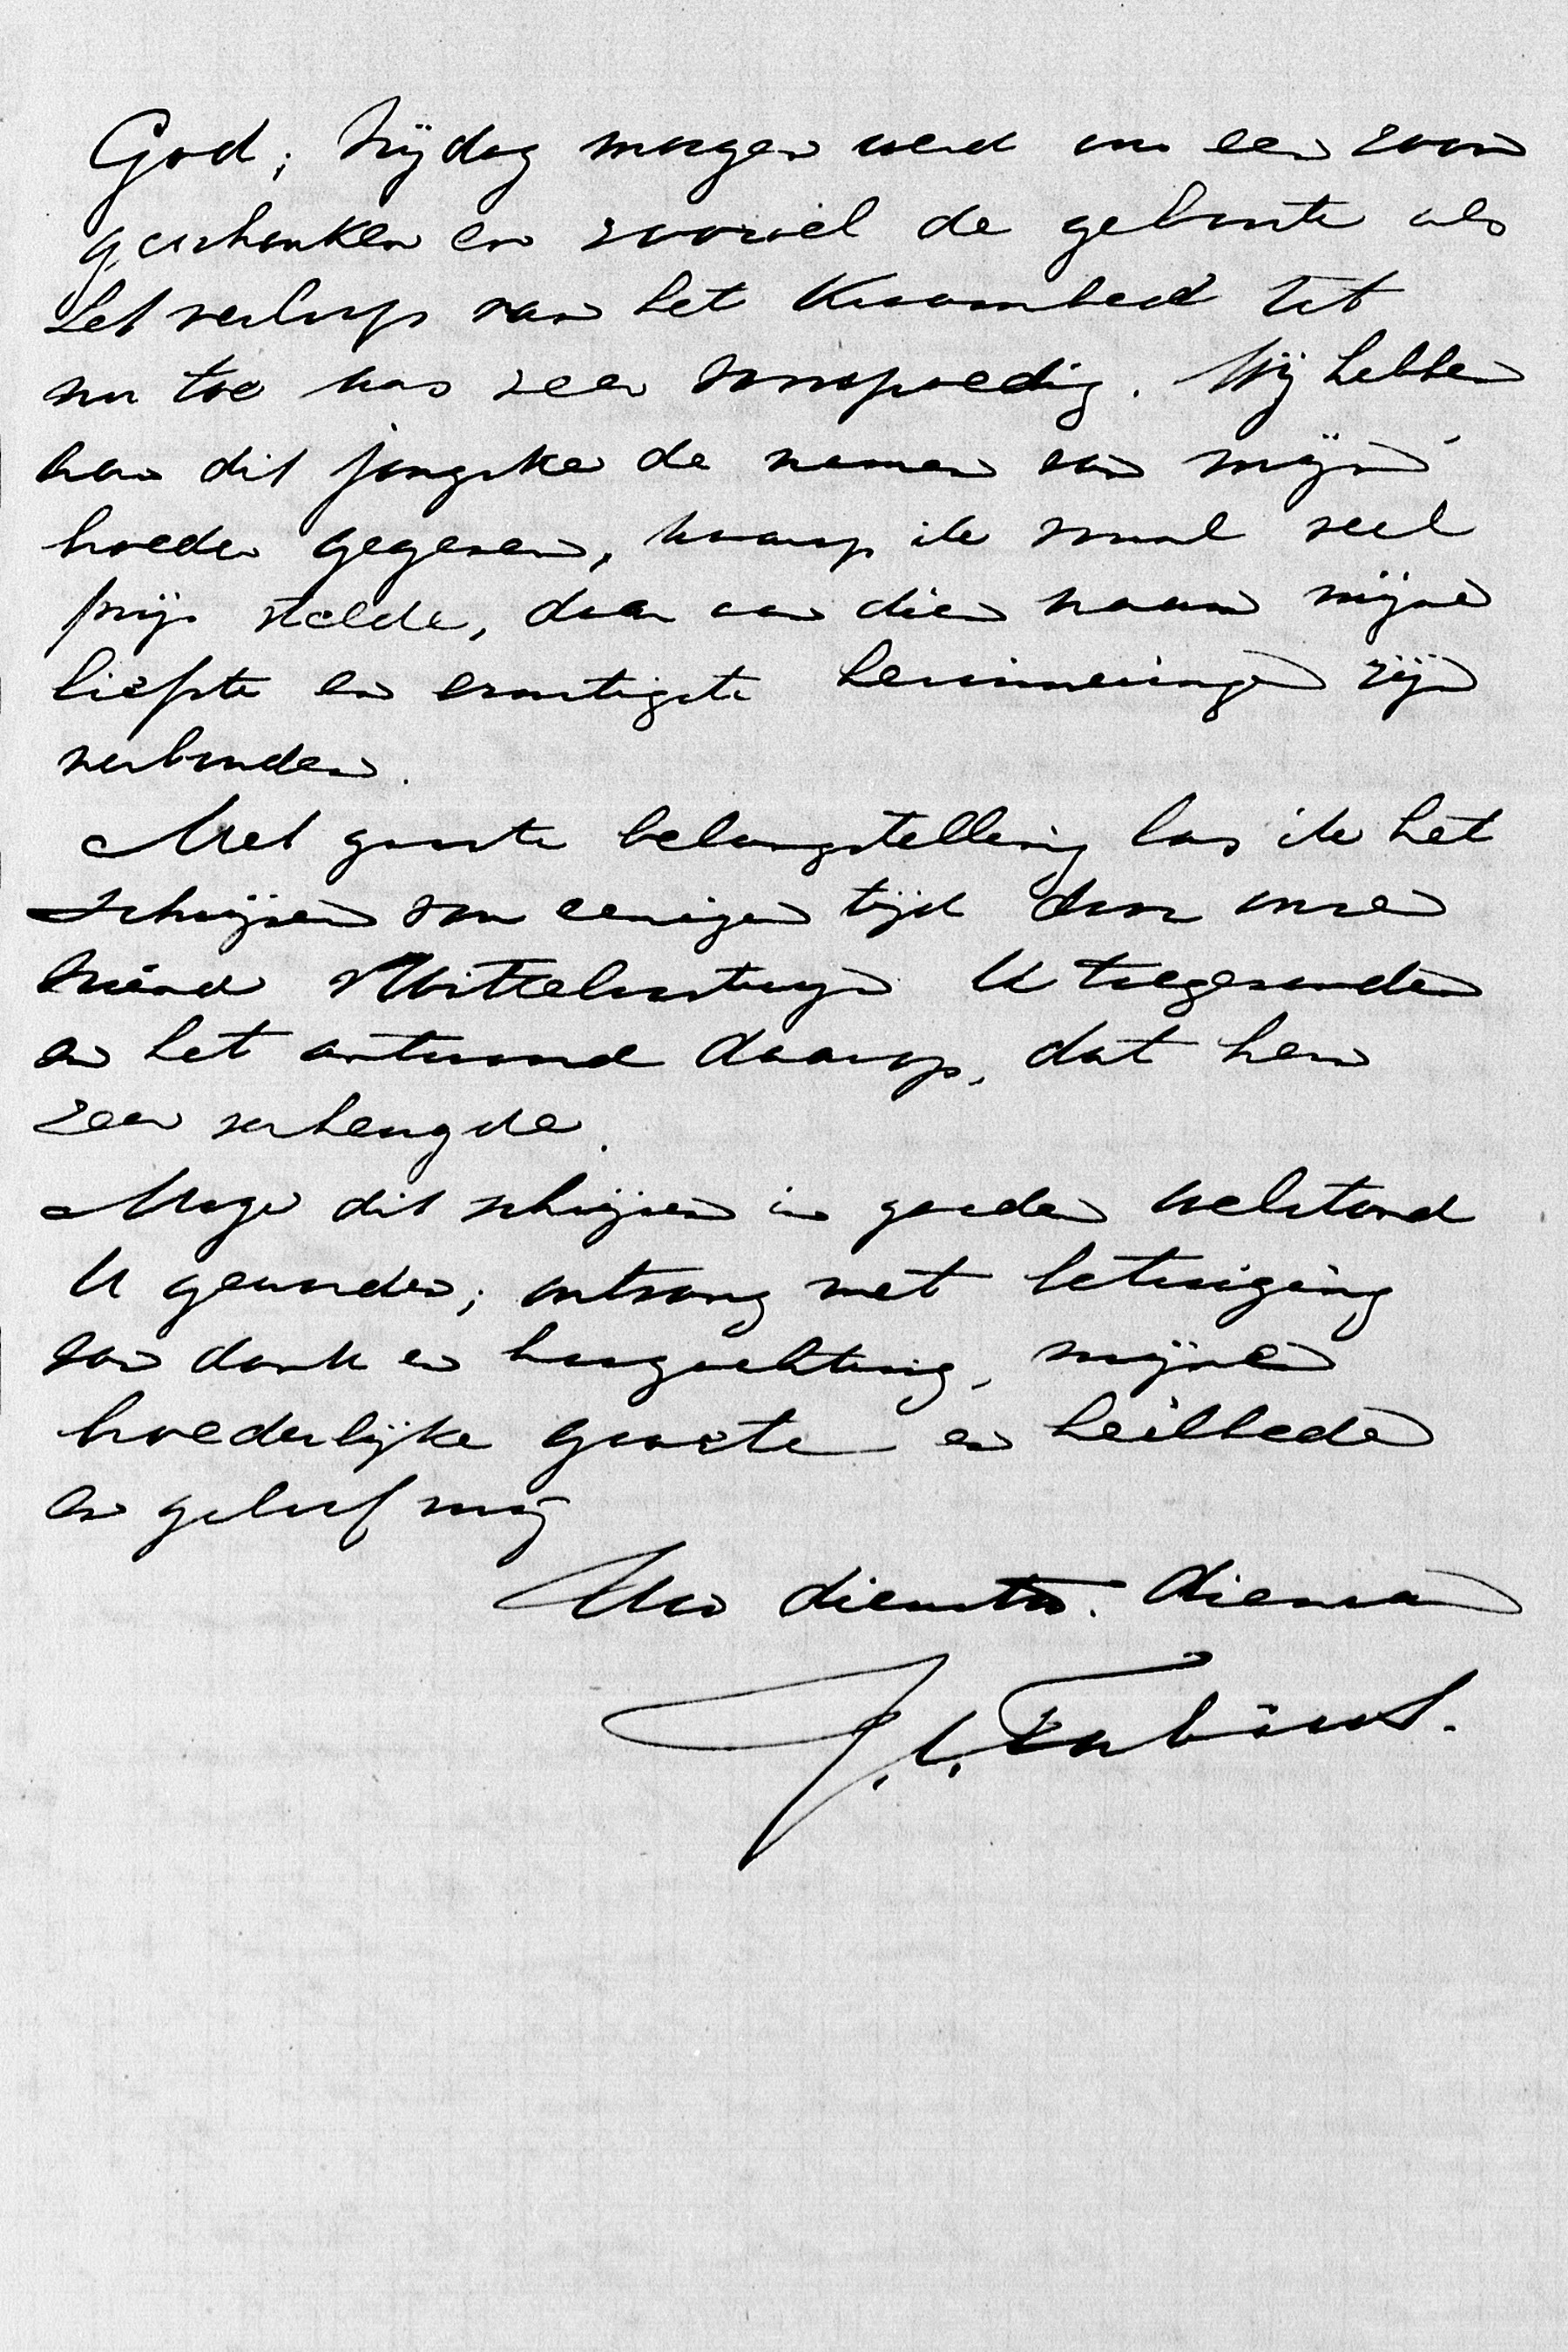 God; Vrijdag morgen werd ons een zoon
geschonken en zoowel de geboorte als
het verloop van het Kraambed tot
nu toe was zeer voorspoedig. Wij hebben
aan dit jongske de namen van mijn
broeder gegeven, waarop ik vooral veel
prijs stelde, daar aan dien naam mijne
liefste en ernstigste herinneringen zijn
verbonden.
Met groote belangstelling las ik het
schrijven voor eenigen tijd door onzen
vriend Mittelstuyn U toegezonden
en het antwoord daarop, dat hem
zeer verheugde.
Moge dit schrijven in goeden welstand
U geworden; ontvang met betuiging
van dank en hoogachting, mijne
broederlijke groete en heilbede
en geloof mij
Uw dienstw. dienaar
J. C. Fabius.